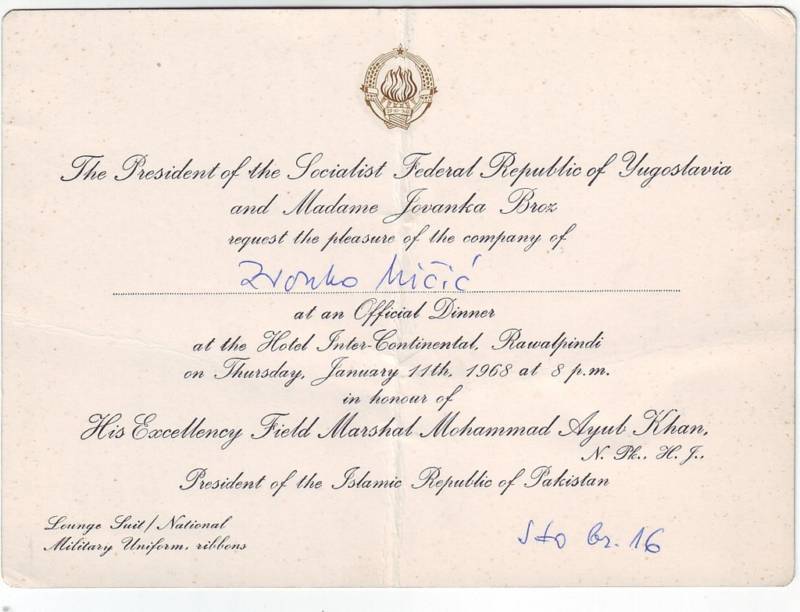 The President of the Socialist Federal Republic of Yugoslavia
and Madame Jovanka Broz
request the pleasure of the company of
Zvonko Mičić
at an Official Dinner
at the Hotel Inter-Continental, Rawalpindi
on Thursday, January 11th, 1968 at 8 p.m.
in honour of
His Excellency Field Marshal Mohammad Ayub Khan,
N. Pk., H. J.,
President of the Islamic Republic of Pakistan
Lounge Suit/National
Military Uniform, ribbons
Sto br. 16